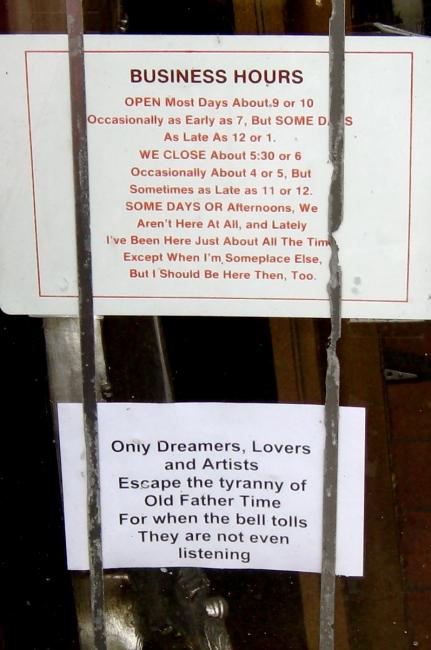 BUSINESS HOURS
OPEN Most Days About 9 or 10
Occasionally as Early as 7, But SOME DAYS
As Late As 12 or 1.
WE CLOSE About 5:30 or 6
Occasionally About 4 or 5, But
Sometimes as Late as 11 or 12.
SOME DAYS OR Afternoons, We
Aren't Here At All, and Lately
I've Been Here Just About All The Time
Except When I'm Someplace Else,
But I Should Be Here Then, Too.
Only Dreamers, Lovers
and Artists
Escape the tyranny of
Old Father Time
For when the bell tolls
They are not even
listening